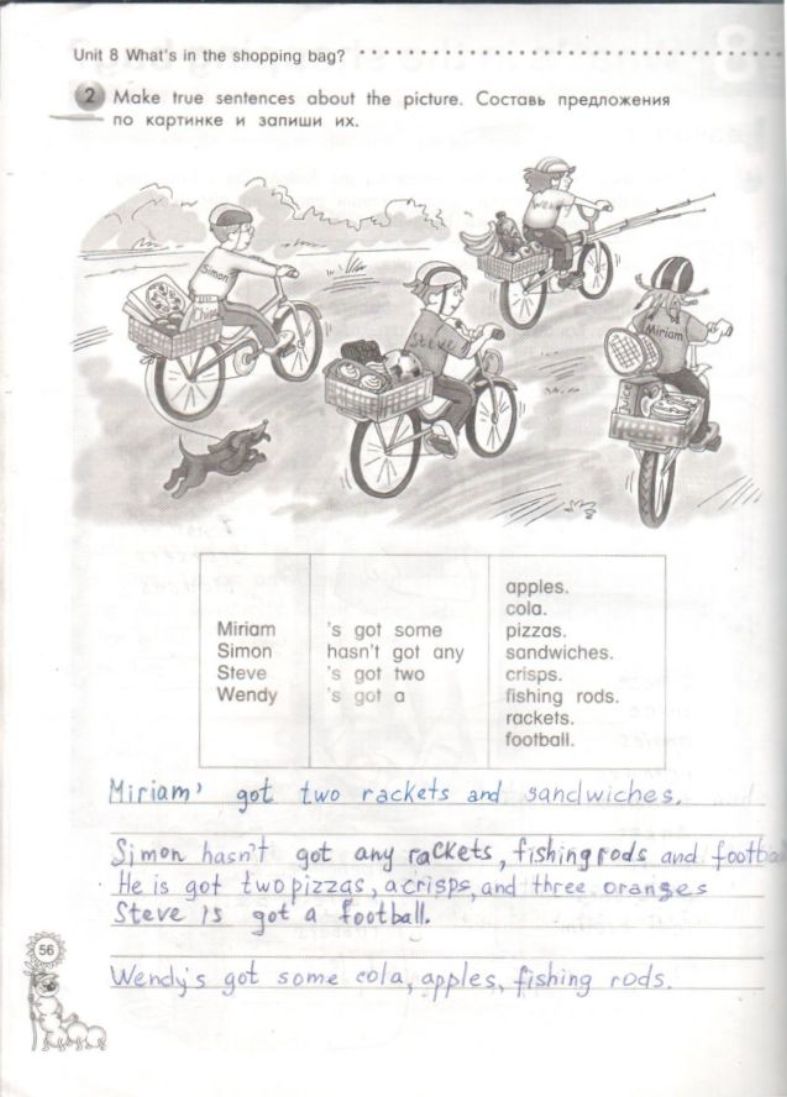 Unit 8 What's in the shopping bag?
2 Make true sentences about the picture. Составь предложения
по картинке и запиши их.
Wendy
Simon
Chips
Steve
Miriam
Juice
apples.
cola.
Miriam 's got some pizzas.
Simon hasn't got any sandwiches.
Steve 's got two crisps.
Wendy 's got a fishing rods.
rackets.
football.
Miriam' got two rackets and sandwiches.
Simon hasn't got any rackets, fishing rods and footba
He is got two pizzas, a crisps, and three oranges
Steve is got a football.
Wendy's got some cola, apples, fishing rods.
56